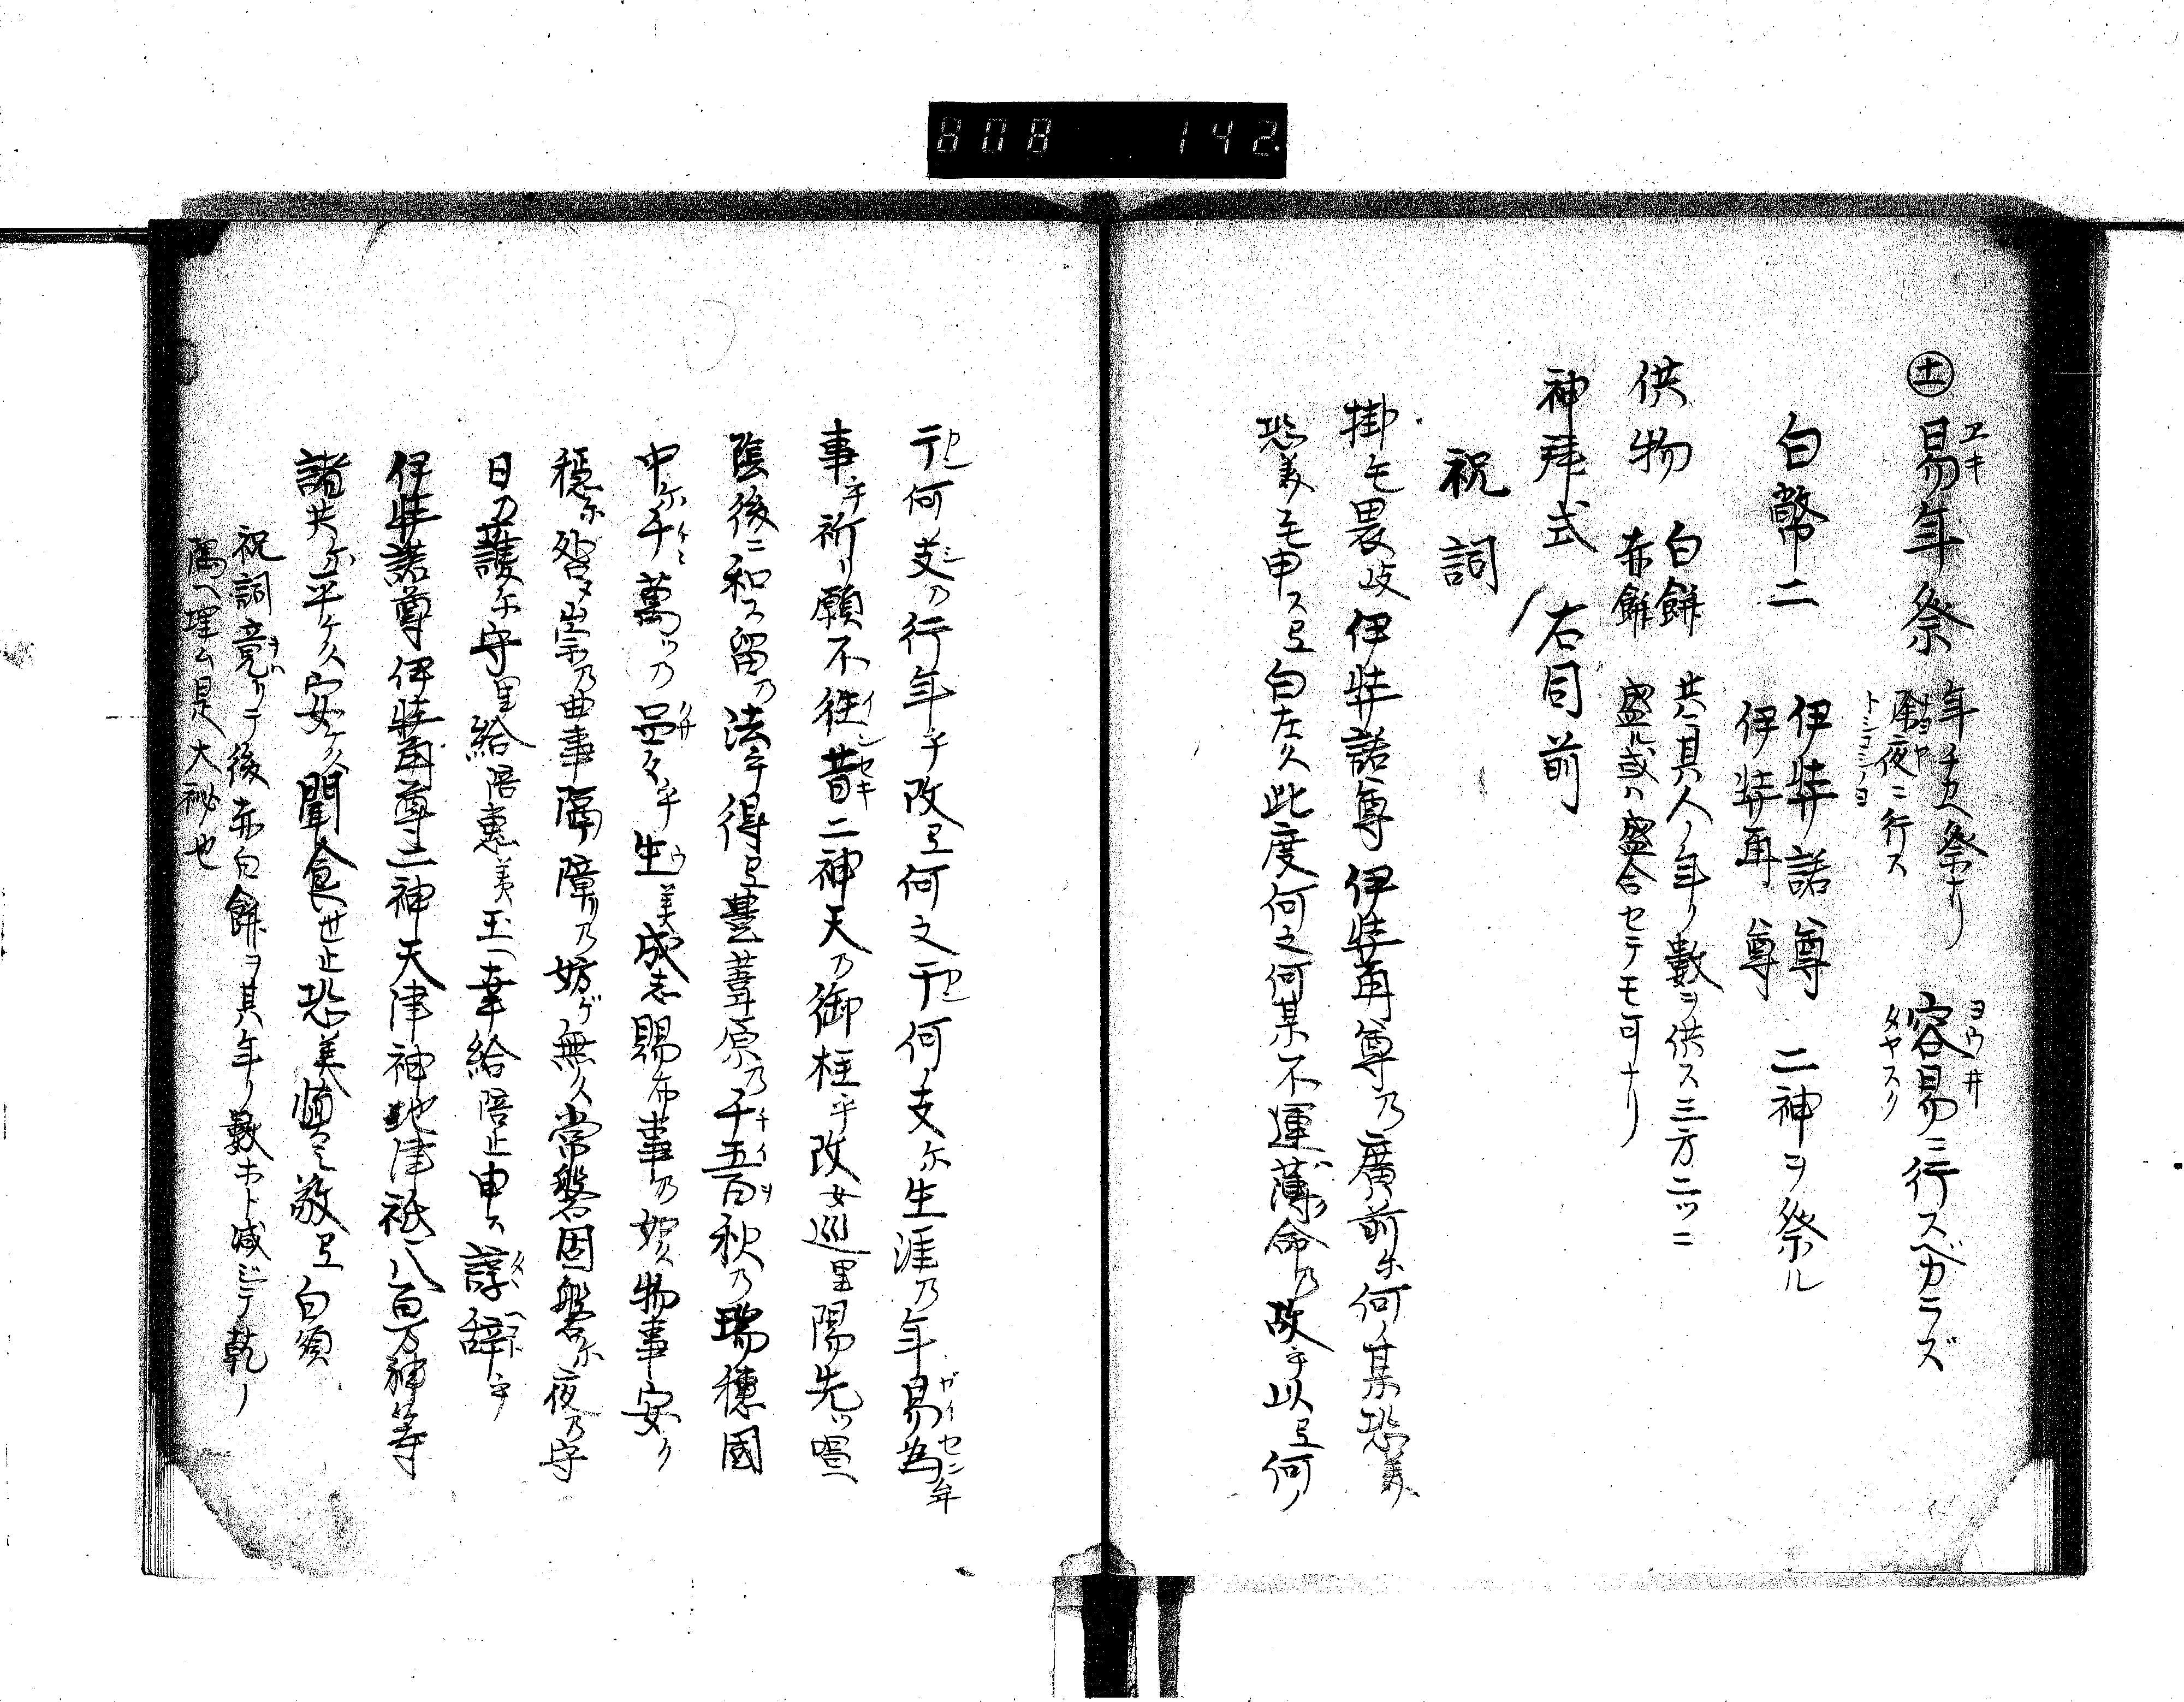 808 142
㊉一 易年祭 年チカヘ祭ナリ 除夜ニ行ス 容易ニ行スベカラズ
白幣二 伊弉諾尊 伊弉冉尊 二神ヲ祭ル
供物 白餅 赤餅 共ニ其人ノ年ノ數ヲ供ス三方二ツニ
盛ル或ハ盛合セテモ可ナリ
神拜式 右同前
祝詞
掛モ畏岐伊弉諾尊伊弉冉尊乃廣前尓何ノ某恐美
恐美モ申ス弖白左久此度何之何某不運薄命乃改乎以弖何ノ
干何ノ支乃行年乎改弖何之干何ノ支尓生涯乃年易為
事乎祈リ願不往昔二神天乃御柱乎改女巡里陽先ツ唱
陰後ニ和ス留乃法乎得弖豊葦原乃千五百秋乃瑞穂國
中尓千萬ツ乃品々乎生美成志賜布事乃如久物事安ク
穏尓咎メ崇乃曲事隔障リ乃妨ゲ無久常磐固磐尓夜乃守
日乃護尓守里給陪惠美玉一幸給陪止申ス諄辞乎
伊弉諾尊伊弉冉尊二神天津神地津祇八百万神等
諸共尓平ケク安ケク聞食世止恐美慎ミ敬弖白須
祝詞竟リテ後赤白餅ヲ其年ノ數ホト減ジテ乾ノ
隅ヘ埋ム是大祕也